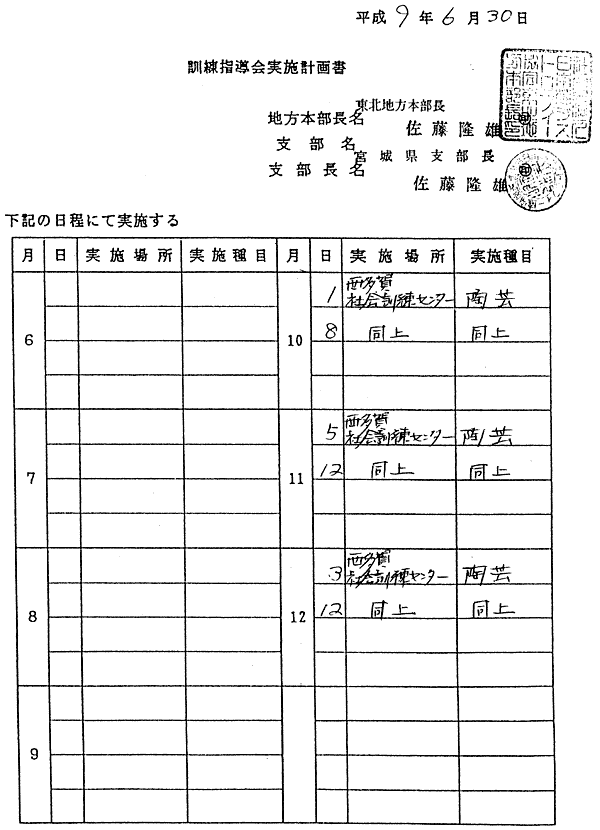 平成 9 年 6 月 30 日
訓練指導会実施計画書
東北地方本部長
地方本部長名 佐藤隆雄
支部名 宮城県支部長
支部長名 佐藤隆雄
下記の日程にて実施する
月 日 実施場所 実施種目 月 日 実施場所 実施種目
6 10 1 西多賀 社会訓練センター 陶芸
8 同上 同上
7 11 5 西多賀 社会訓練センター 陶芸
12 同上 同上
8 12 3 西多賀 社会訓練センター 陶芸
12 同上 同上
9